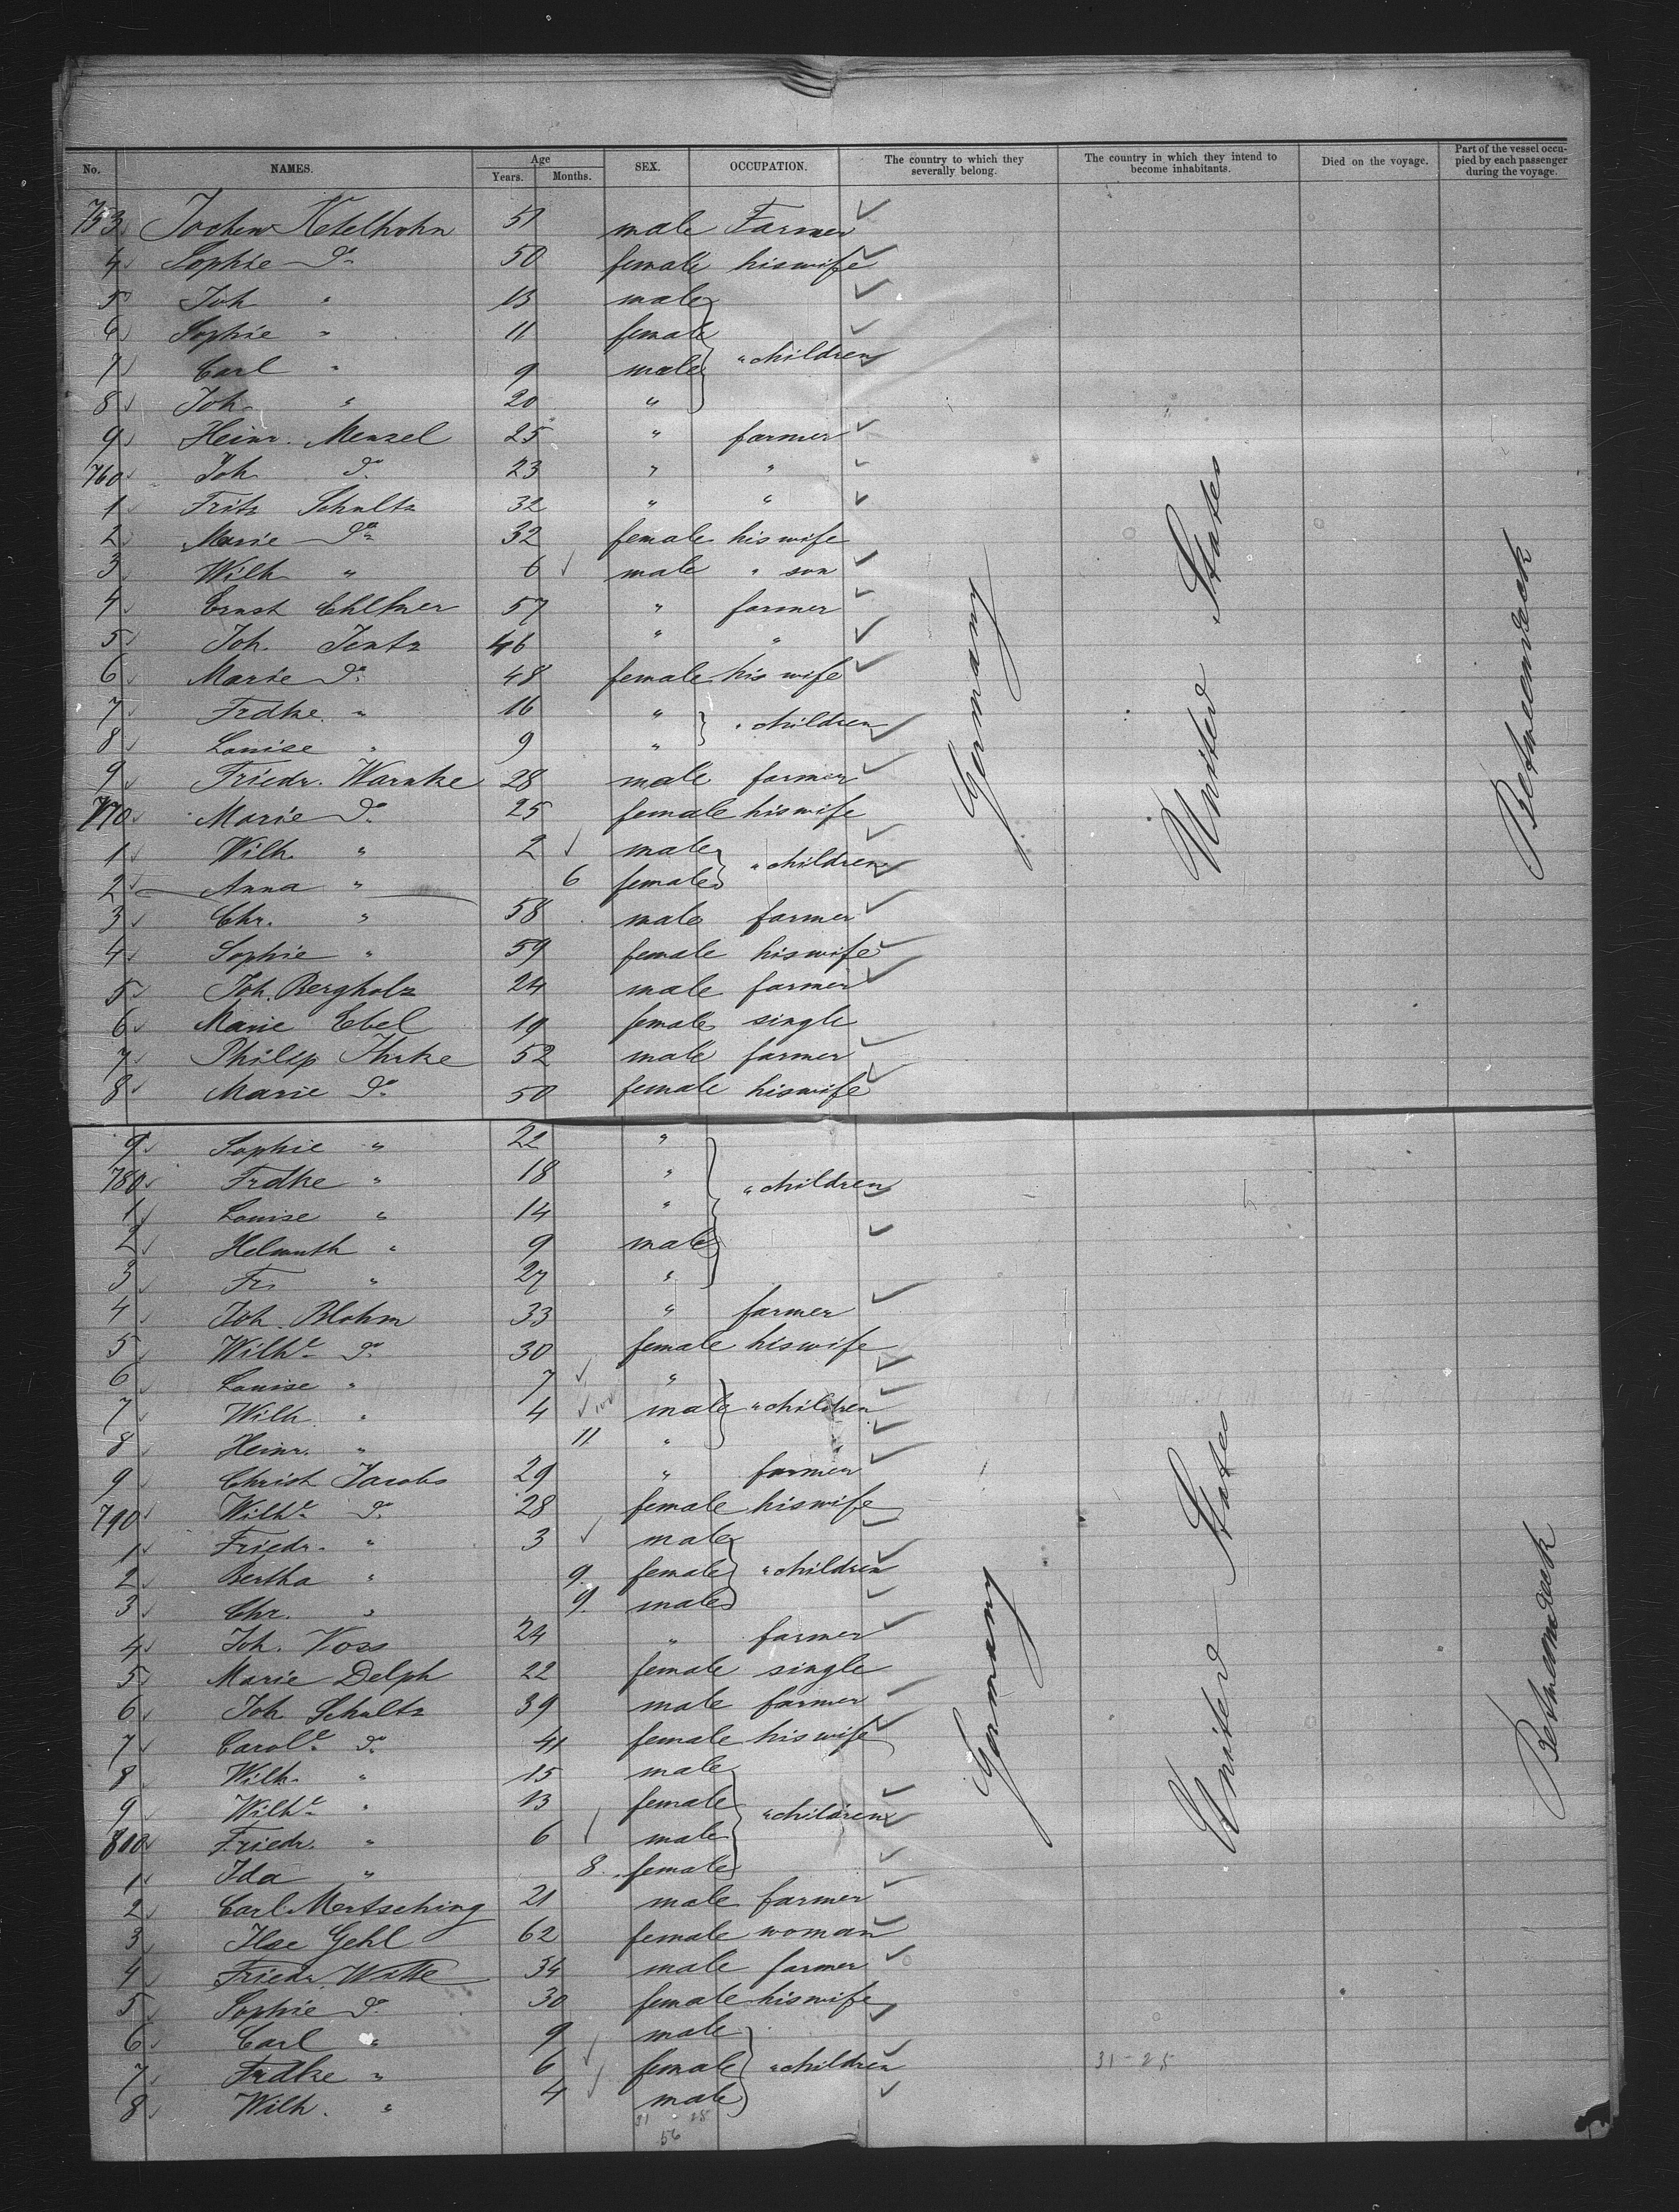 No. NAMES. Age Years. Months. SEX. OCCUPATION. The country to which they severally belong. The country in which they intend to become inhabitants. Died on the voyage. Part of the vessel occupied by each passenger during the voyage.
753 Jochen Ketelhohn 51 male Farmer
4 Sophie do 50 female his wife
5 Joh " 13 male
6 Sophie " 11 female
7 Carl " 9 male " children
8 Joh. " 20 "
9 Heinr. Menzel 25 " farmer
760 Joh do 23 " "
1 Fritz Schultz 32 " "
2 Marie do 32 female his wife
3 Wilh " 6 male " son
4 Ernst 57 " farmer
5 Joh. Jentz 46 " "
6 Marie do 48 female his wife
7 Frdke. " 16 " " children
8 Louise " 9 "
9 Friedr. Warnke 28 male farmer
770 Marie do 25 female his wife
1 Wilh. " 2 male " children
2 Anna " 6 female
3 Chr. " 58 male farmer
4 Sophie " 59 female his wife
5 Joh. Bergholz 24 male farmer
6 Marie Ebel 19 female single
7 Philip Thrke 52 male farmer
8 Marie do 50 female his wife
Germany United States Betweendeck
9 Sophie " 22 "
780 Frdke " 18 " " children
1 Louise " 14 "
2 Helmuth " 9 male
3 Fr. " 27 "
4 Joh. Blohm 33 " farmer
5 Wilhe do 30 female his wife
6 Louise " 7 "
7 Wilh. " 4 male " children
8 Heinr. " 11 "
9 Christ Jacobs 29 " farmer
790 Wilhe do 28 female his wife
1 Friedr. " 3 male
2 Bertha " 9 female " children
3 Chr. " 9 male
4 Joh. Voss 24 " farmer
5 Marie Delph 22 female single
6 Joh Schultz 39 male farmer
7 Carole do 41 female his wife
8 Wilh. " 15 male
9 Wilhe " 13 female " children
800 Friedr. " 6 male
1 Ida " 8 female
2 Carl Mertsching 21 male farmer
3 Ilse Gehl 62 female woman
4 Friedr. Witte 34 male farmer
5 Sophie do 30 female his wife
6 Carl " 9 male
7 Frdke " 6 female " children
8 Wilh. " 4 male
Germany United States Betweendeck
31-25
31 25
56